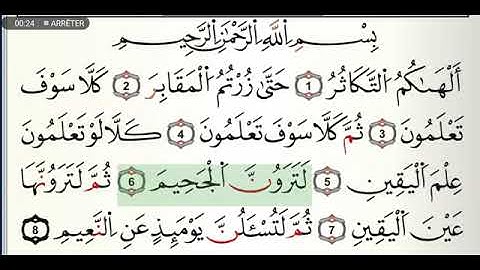 00:24 ■ ARRÊTER
بِسْمِ اللَّهِ الرَّحْمَٰنِ الرَّحِيمِ
أَلْهَاكُمُ التَّكَاثُرُ 1 حَتَّىٰ زُرْتُمُ الْمَقَابِرَ 2 كَلَّا سَوْفَ
تَعْلَمُونَ 3 ثُمَّ كَلَّا سَوْفَ تَعْلَمُونَ 4 كَلَّا لَوْ تَعْلَمُونَ
عِلْمَ الْيَقِينِ 5 لَتَرَوُنَّ الْجَحِيمَ 6 ثُمَّ لَتَرَوُنَّهَا
عَيْنَ الْيَقِينِ 7 ثُمَّ لَتُسْـَٔلُنَّ يَوْمَئِذٍ عَنِ النَّعِيمِ 8